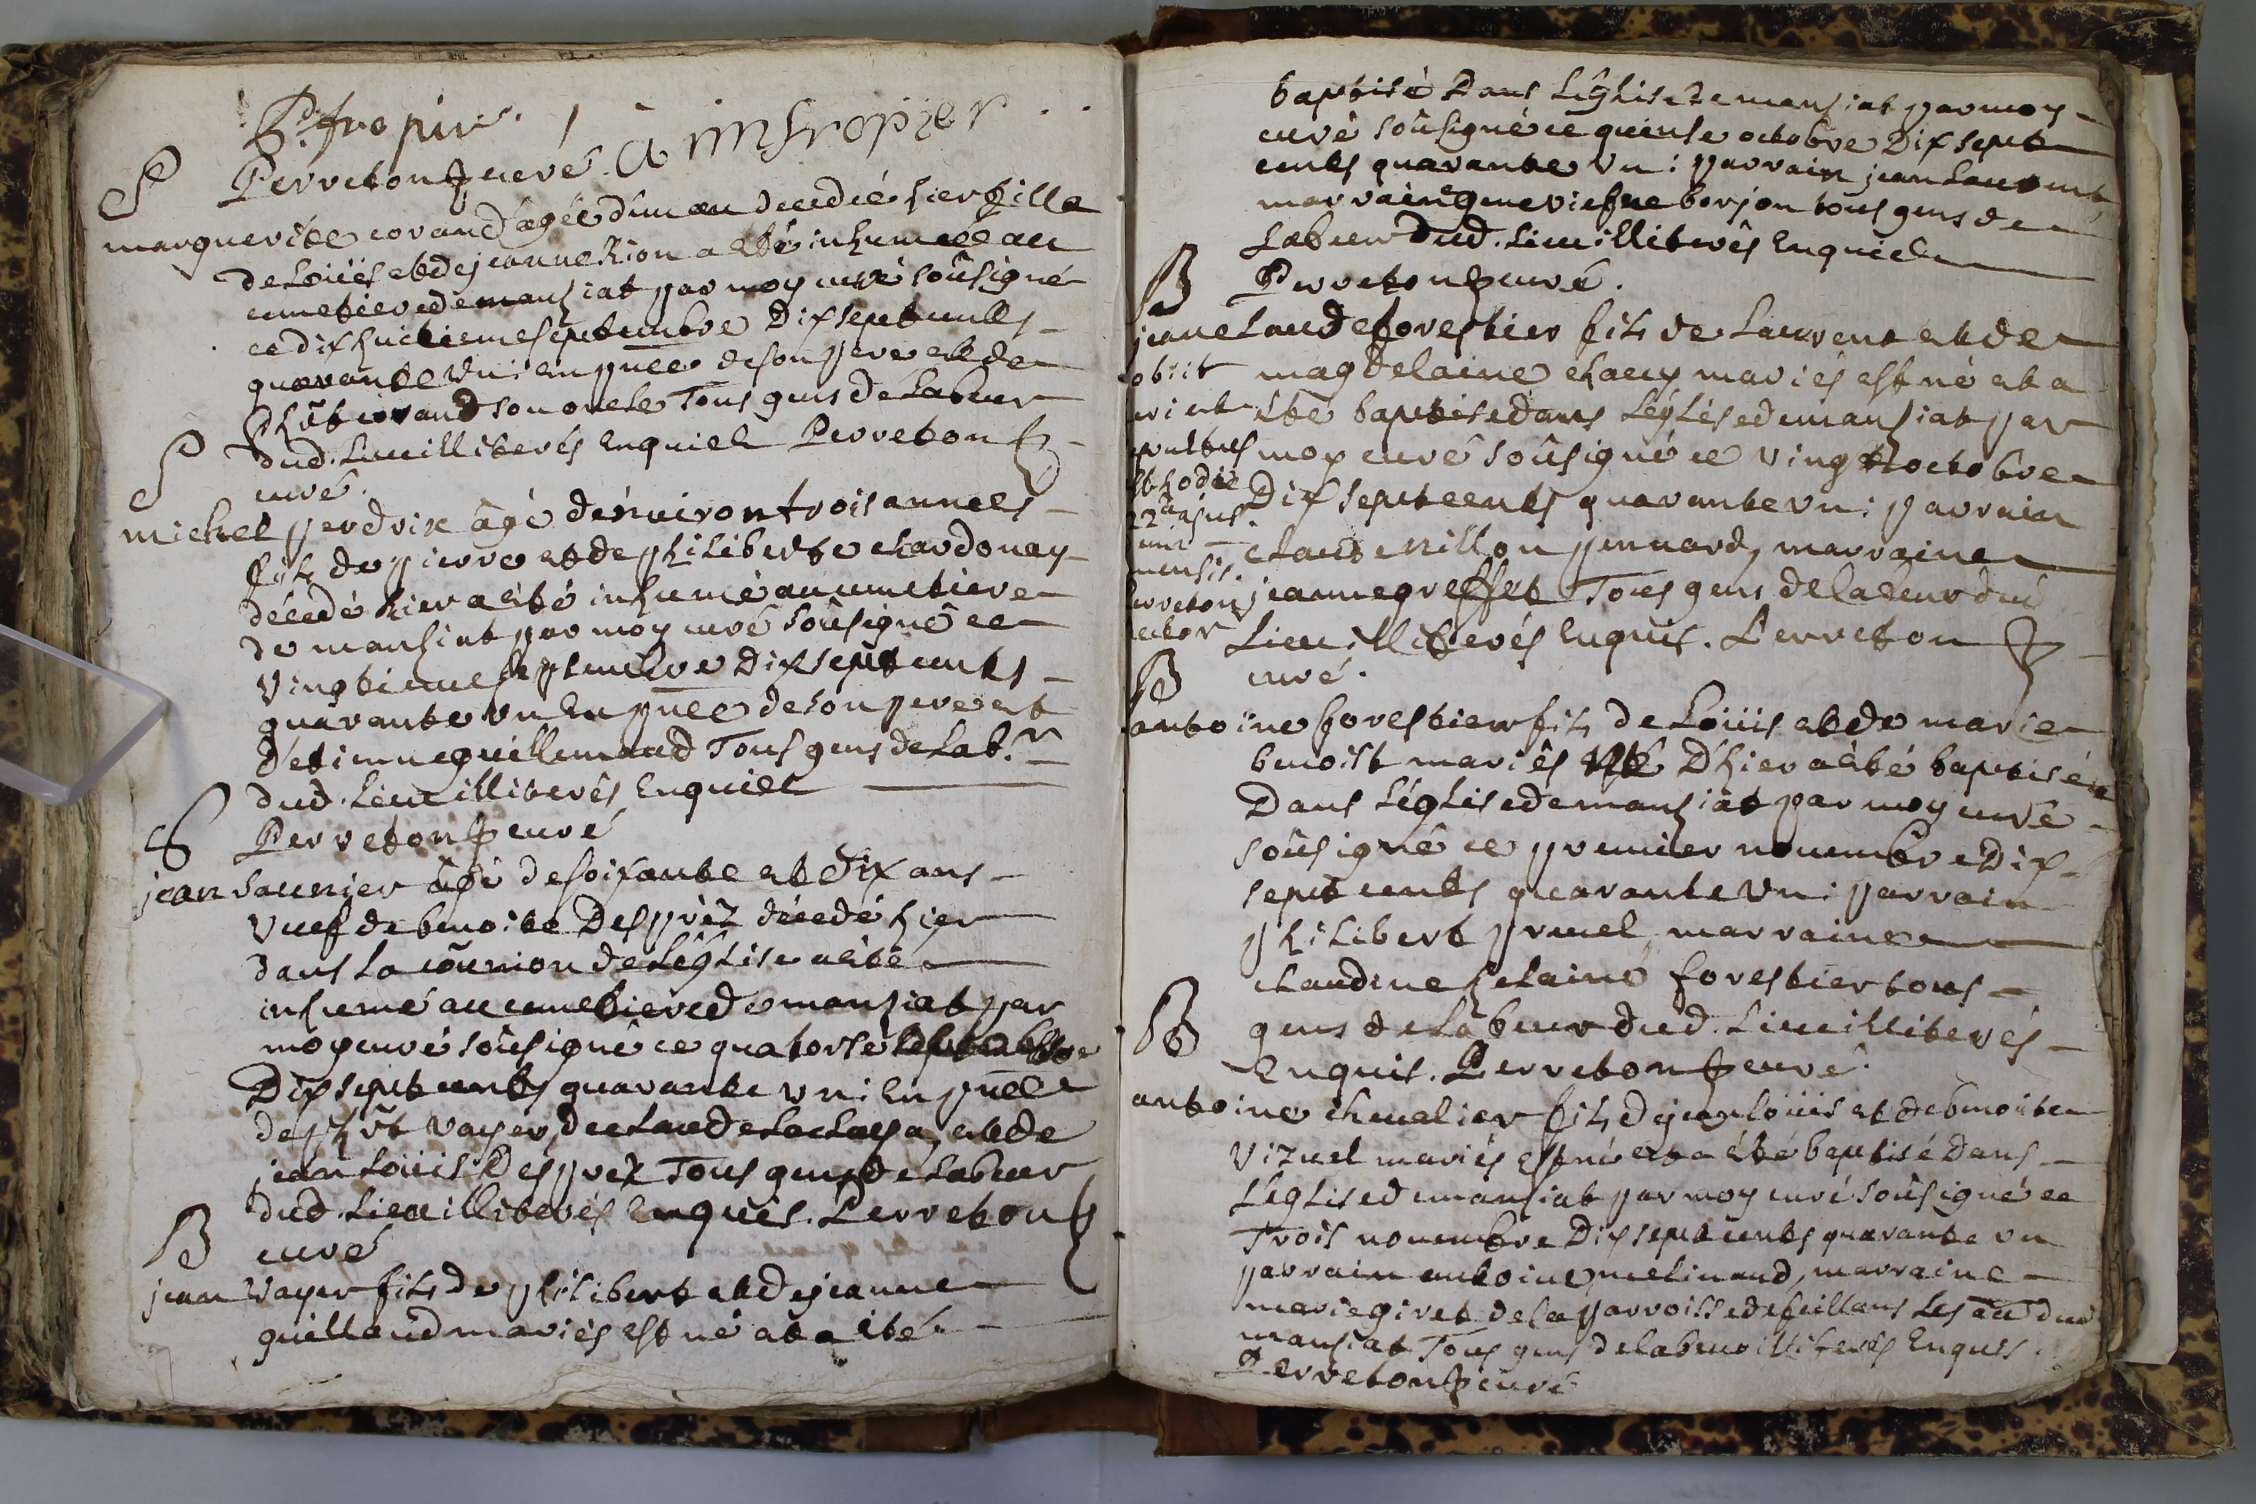 Perreton curé. a
S
marguerite corand agée dun an decedeé hier fille
de Loüis et de jeanne Rion a été inhumeé au
cimetiere de manziat par moy curé soûsigné
ce dixhuitieme septembre Dix sept cents
quarante un : en pnce de son pere et de
Phût corand son oncle Tous gens de Labeur
dud. Lieu illiterés Enquiel Perreton
curé.
S
michel perdrix âgé dénviron trois annees
fils de pierre et de philiberte chardonay
décedé hier a été inhumé au cimetiere
de manziat par moy curé soûsigné ce
vingtieme septembre Dix sept cents
quarante vn En pnce de son pere et
d'etienne guillemaud Tous gens de Labr
dud. Lieu illiterés Enquiel
Perreton curé
S
jean saunier âgé de soixante et dix ans
vuef de benoite Desprèz décedé hier
dans la coûnion de Léglise a été
inhumé au cimetiere de manziat par
moy curé soûsigné ce quatorse
Dix sept cents quarante vn : En pnce
de phût vayer, de claude et de
jean Loüis Desprez Tous gens de Labeur
dud. Lieu illiterés Enquis. Perreton
curé
B
jean vayer fils de philibert et de jeanne
guillaud mariés est né et a été
baptisé Dans Léglise de manziat par moy
curé soûsigné ce quinse octobre Dix sept
cents quarante vn : parrain jean
marraine geneviefue borjon tous gens de
Labeur dud. Lieu illiterés Enquiel
Perreton curé.
B
jean claude forestier fils de Laurent et de
magdelaine chacuy mariés est né et a
été baptisé dans Léglise de manziat par
moy curé soûsigné ce vingt octobre
Dix sept cents quarante vn : parrain
claude pennard, marraine
jeanne greffet Tous gens de labeur dud
Lieu illiterés Enquis. Perreton
curé.
obiit
sepultus
est hodie
22a ejus
mensis.
perreton
rector
B
antoine forestier fils de Loüis et de marie
benoist mariés né D'hier a été baptisé
Dans Léglise de manziat par moy curé
soûsigné ce premier nouembre Dix
sept cents quarante Vn : parrain
philibert pruel, marraine
claudine helaine forestier tous
gens de Labeur dud. Lieu illiterés
Enquis. Perreton curé.
B
antoine cheualier fils de jean loüis et de benoite
vizuel mariés est né et a été baptisé Dans
L'églised de manziat par moy curé soûsigné ce
Trois nouembre Dix sept cents quarante vn
parrain antoine melinand, marraine
marie giret de la parroisse de feillans Les au dud
manziat Tous gens de labeur illiterés Enquis.
Perreton curé